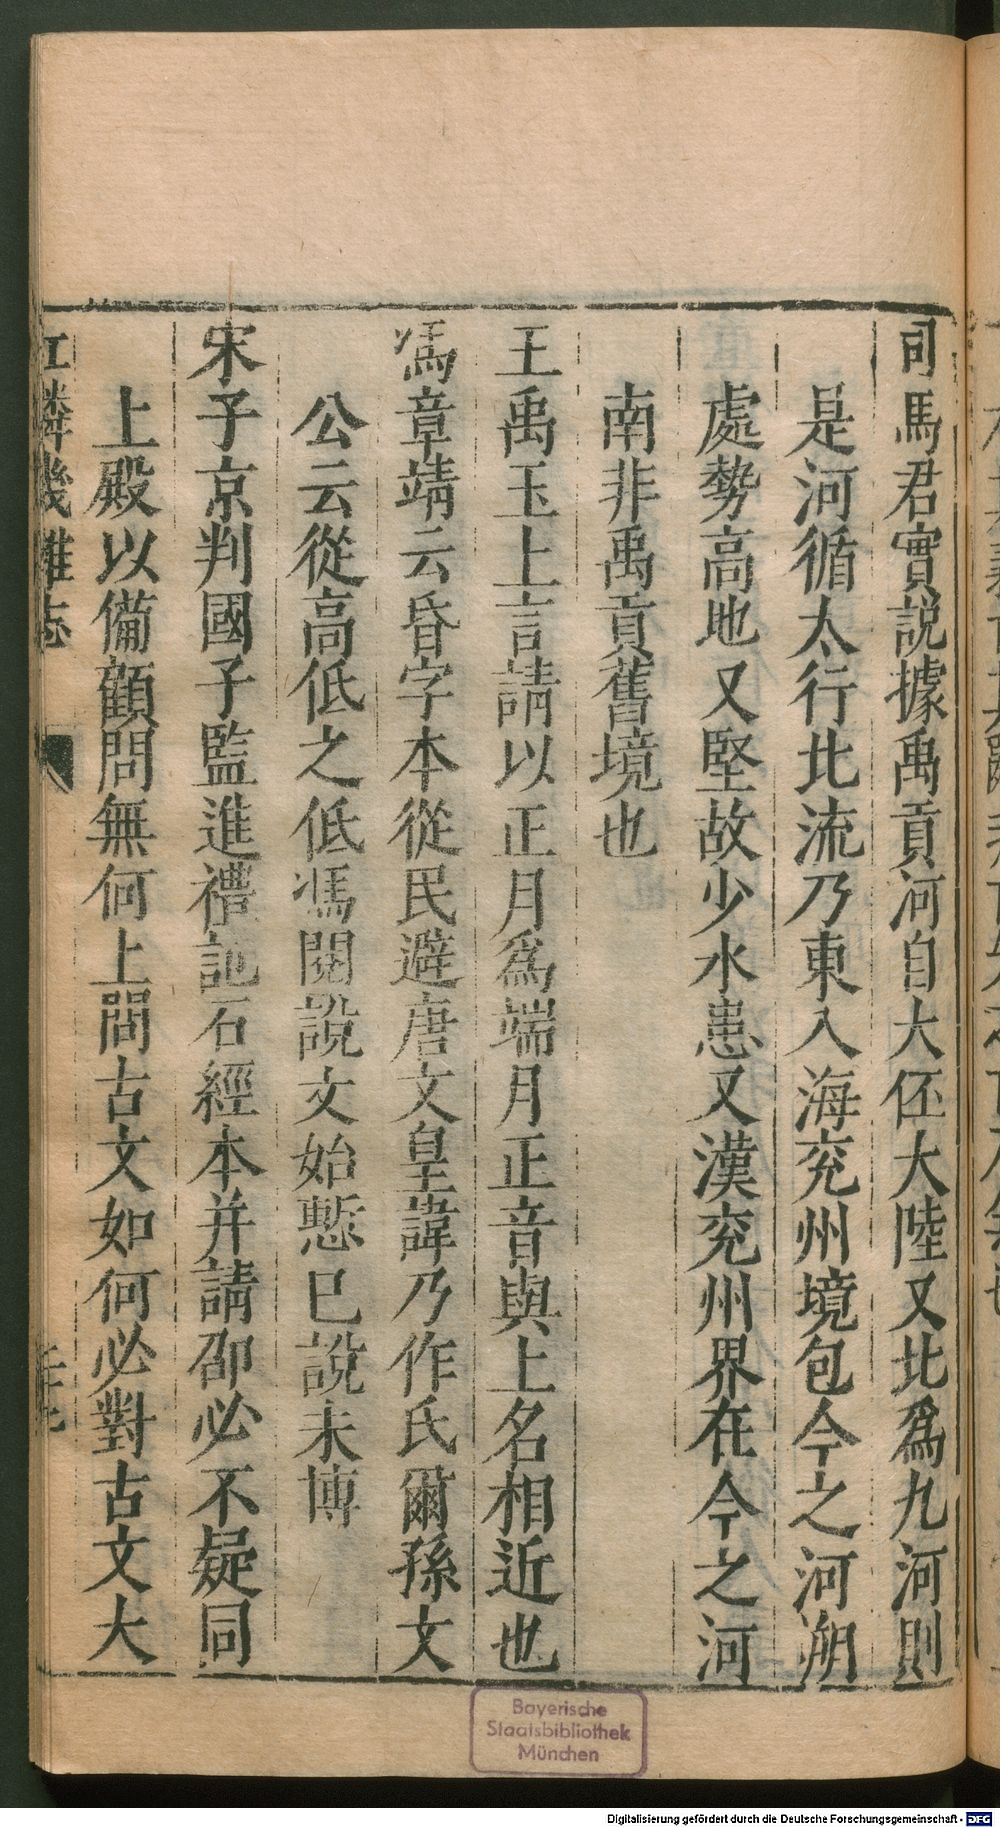 司馬君實説據禹貢河自大伾大陸又北爲九河則
是河循太行北流乃東入海兖州境包今之河朔
處勢高地又堅故少水患又漢兖州界在今之河
南非禹貢舊境也
王禹玉上言請以正月爲端月正音與上名相近也
馮章靖云昏字本從民避唐文皇諱乃作氏爾孫文
公云從高低之低馮閲説文始慙已説未博
宋子京判國子監進禮記石經本并請邵必不疑同
上殿以備顧問無何上問古文如何必對古文大
江隣幾雜志
Bayerische
Staatsbibliothek
München
Digitalisierung gefördert durch die Deutsche Forschungsgemeinschaft - DFG